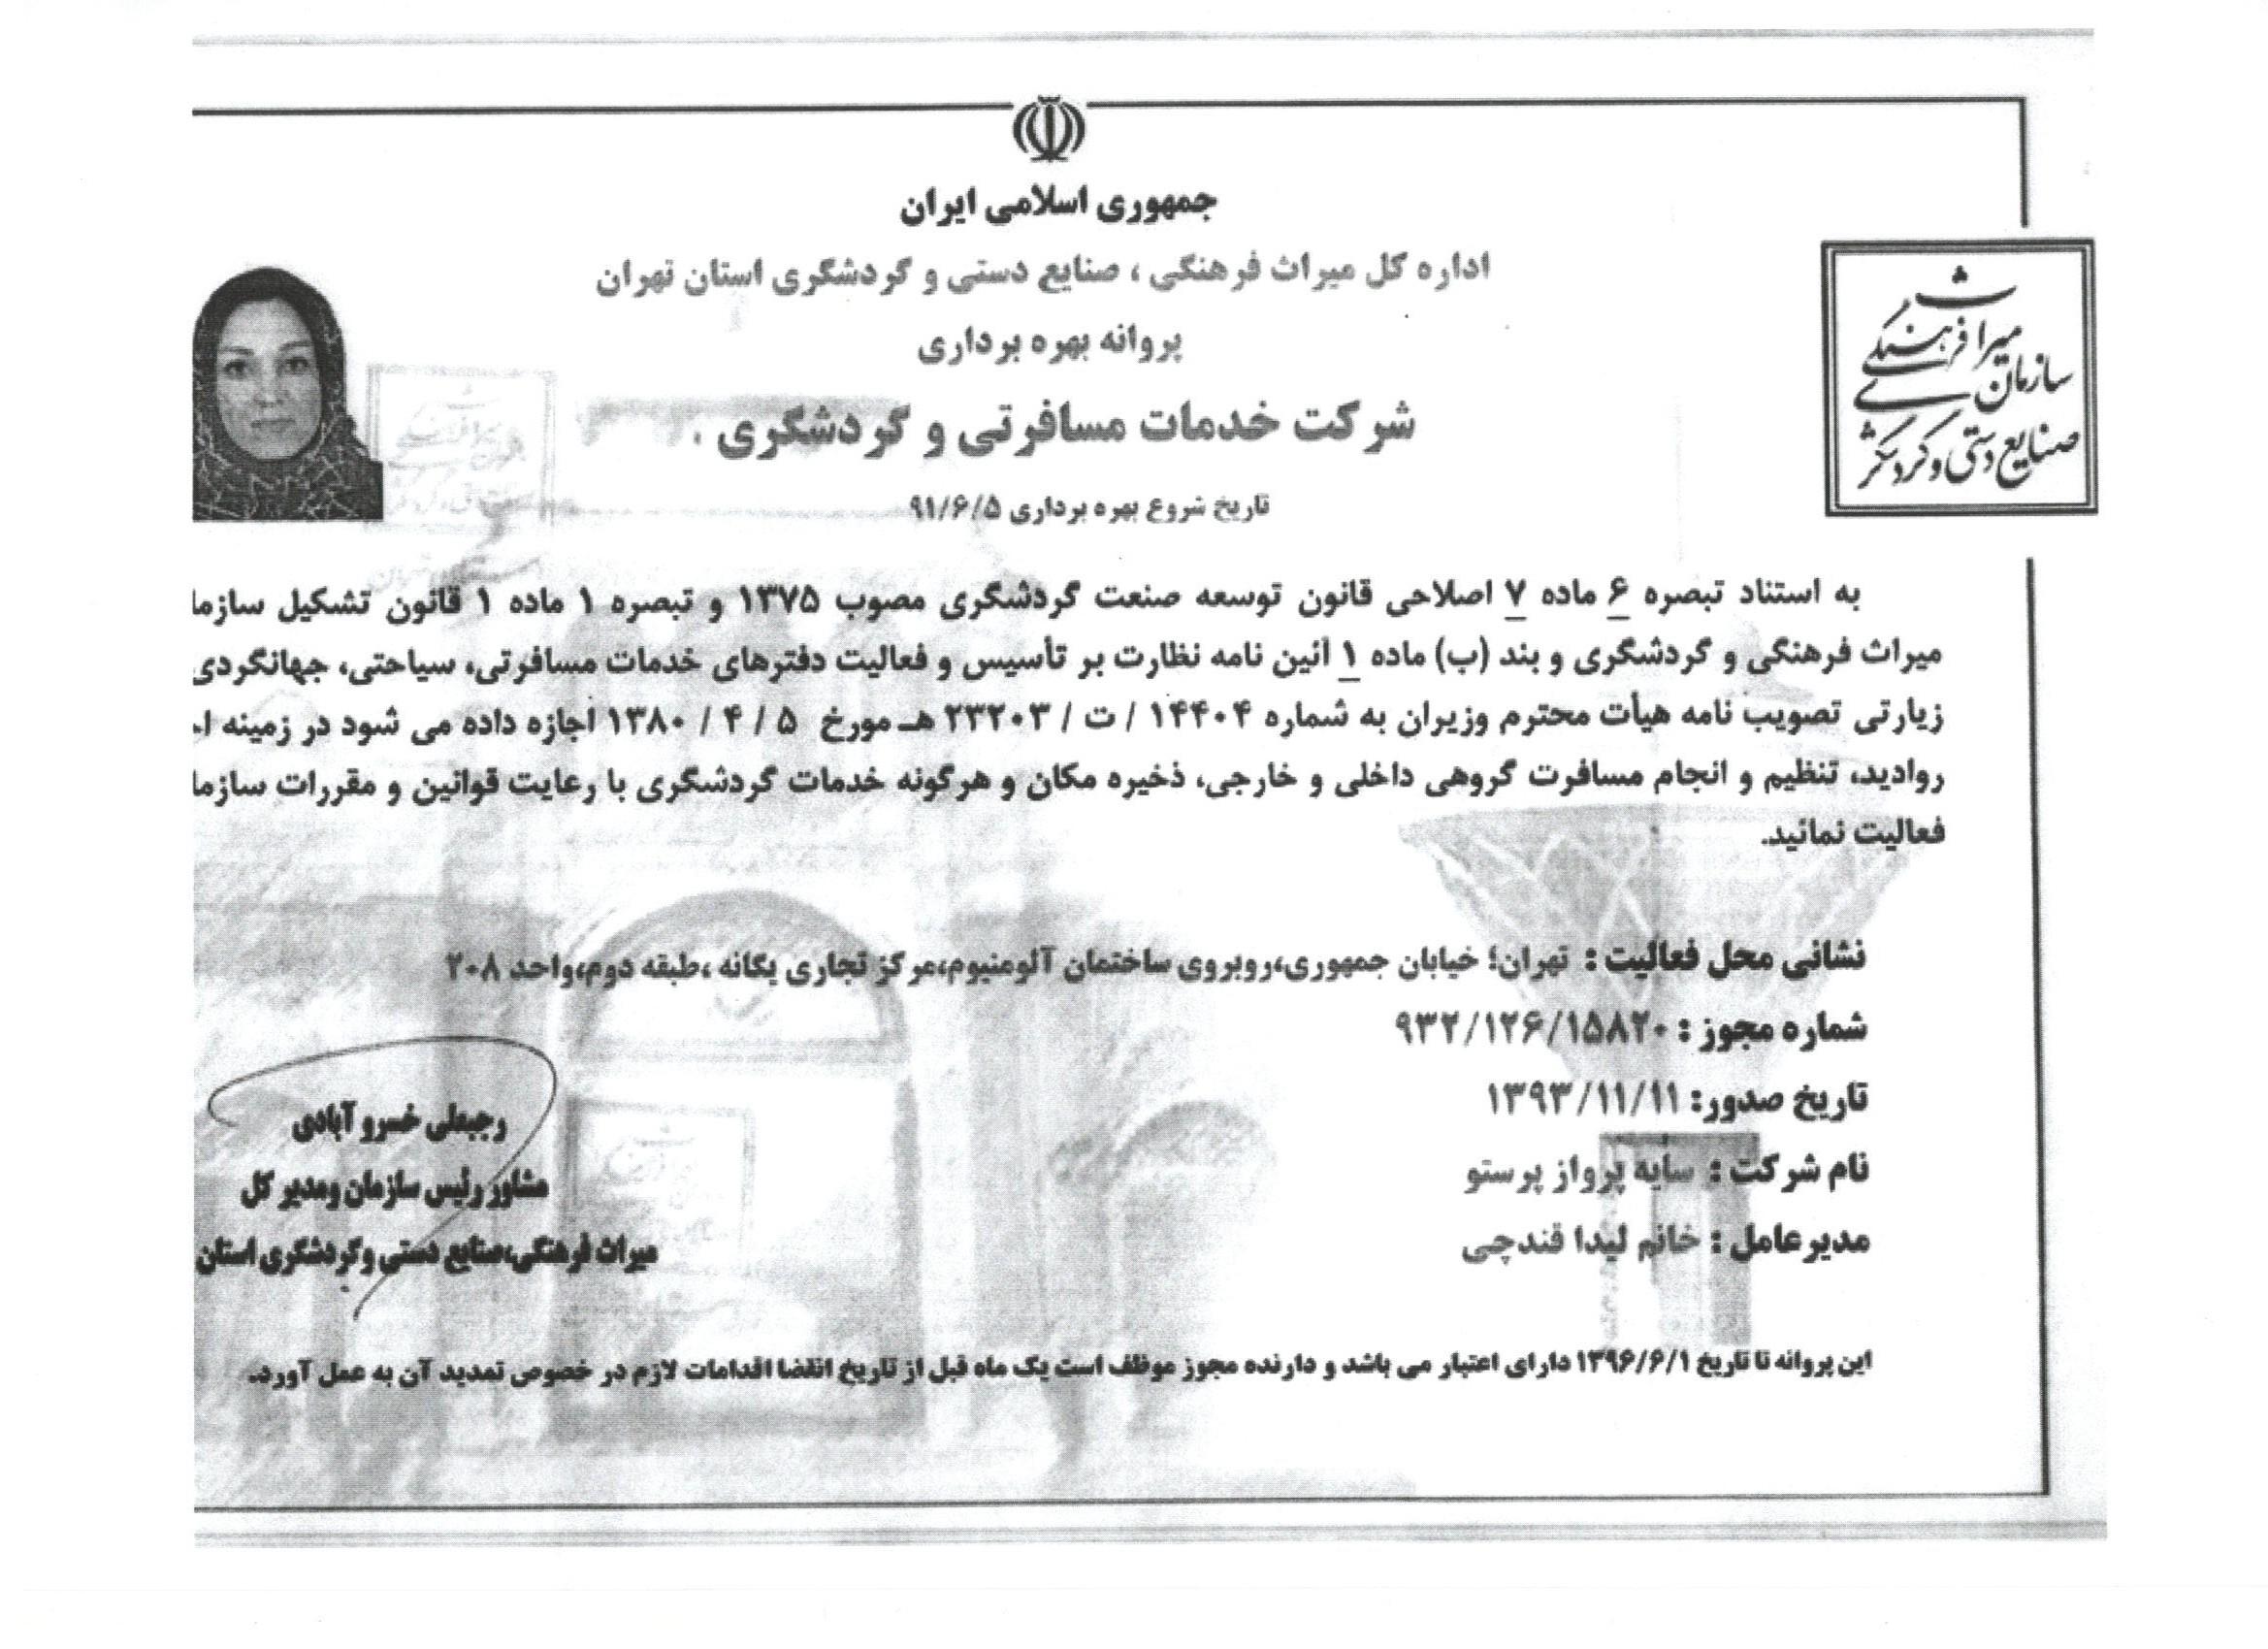 جمهوری اسلامی ایران
اداره کل میراث فرهنگی ، صنایع دستی و گردشگری استان تهران
پروانه بهره برداری
شرکت خدمات مسافرتی و گردشگری .
تاریخ شروع بهره برداری ۹۱/۶/۵
سازمان میراث فرهنگی
صنایع دستی و گردشگری
به استناد تبصره ۶ ماده ۷ اصلاحی قانون توسعه صنعت گردشگری مصوب ۱۳۷۵ و تبصره ۱ ماده ۱ قانون تشکیل سازما
میراث فرهنگی و گردشگری و بند (ب) ماده ۱ آئین نامه نظارت بر تأسیس و فعالیت دفترهای خدمات مسافرتی، سیاحتی، جهانگردی
زیارتی تصویب نامه هیأت محترم وزیران به شماره ۱۴۴۰۴ / ت / ۲۳۲۰۳ هـ مورخ ۵ / ۴ / ۱۳۸۰ اجازه داده می شود در زمینه
روادید، تنظیم و انجام مسافرت گروهی داخلی و خارجی، ذخیره مکان و هرگونه خدمات گردشگری با رعایت قوانین و مقررات سازما
فعالیت نمائید.
نشانی محل فعالیت : تهران؛ خیابان جمهوری،روبروی ساختمان آلومنیوم،مرکز تجاری یگانه ،طبقه دوم،واحد ۲۰۸
شماره مجوز : ۹۳۲/۱۲۶/۱۵۸۲۰
تاریخ صدور: ۱۳۹۳/۱۱/۱۱
نام شرکت : سایه پرواز پرستو
مدیرعامل : خانم لیدا قندچی
رجبعلی خسرو آبادی
مشاور رئیس سازمان ومدیر کل
میراث فرهنگی،صنایع دستی وگردشگری استان
این پروانه تا تاریخ ۱۳۹۶/۶/۱ دارای اعتبار می باشد و دارنده مجوز موظف است یک ماه قبل از تاریخ انقضا اقدامات لازم در خصوص تمدید آن به عمل آورد.